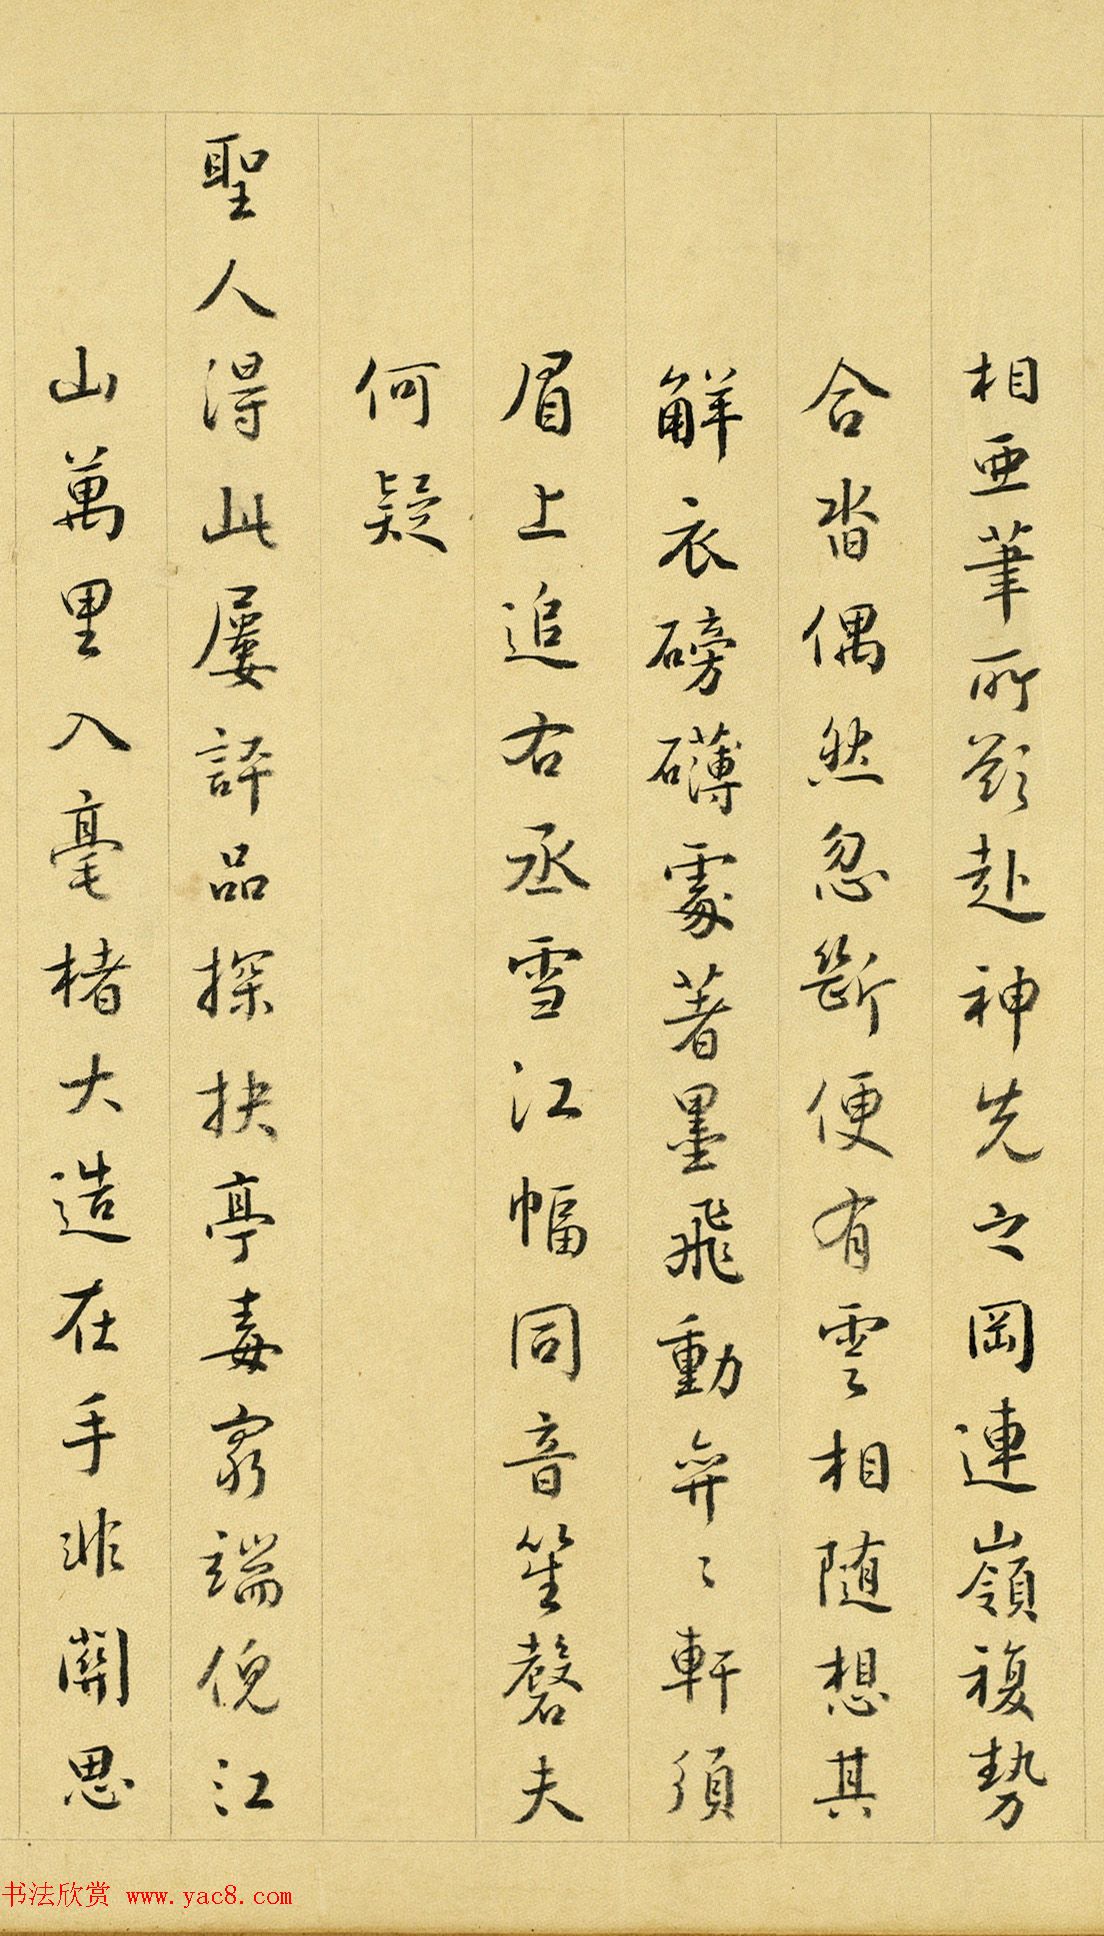 相亜筆所欲赴神先之岡連嶺複勢
合沓偶然忽斷便有雲〻相随想其
解衣磅礴處著墨飛動弇〻軒須
眉上追右丞雪江幅同音笙磬夫
何疑
聖人得此屢評品探抉亭毒窮端倪江
山萬里入毫楮大造在手非關思
书法欣赏 www.yac8.com